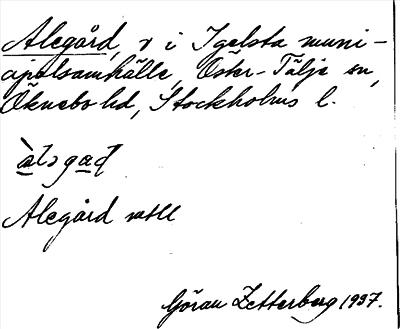 Alegård, v i Igelsta muni-
cipalsamhälle, Öster-Tälje sn,
Öknebo hd, Stockholms l.
Alegård
Göran Zetterberg 1937.